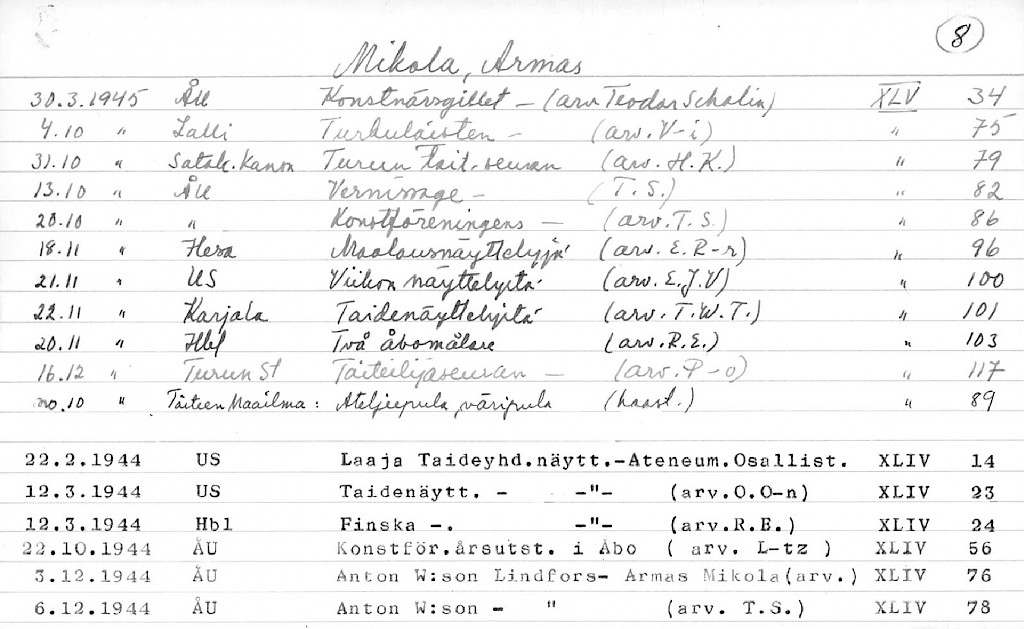 8
Mikola, Armas
30.3.1945 ÅU Konstnärsgillet - (arv Teodor Schalin) XLV 34
4.10 " Lalli Turkulaisten - (arv. V-i) " 75
31.10 " Satak. Kansa Turun tait. seuran (arv. H.K.) " 79
13.10 " ÅU Vernissage - (T.S.) " 82
20.10 " " Konstföreningens - (arv. T.S.) " 86
18.11 " Hesa Maalausnäyttelyjä (arv. E.R-r) " 96
21.11 " US Viikon näyttelyitä (arv. E.J.V) " 100
22.11 " Karjala Taidenäyttelyitä (arv. T.W.T.) " 101
20.11 " Hbl Två åbomålare (arv. R.E.) " 103
16.12 " Turun St Taiteilijaseuran - (arv. P-o) " 117
no.10 " Taiteen Maailma: Ateljeepula, väripula (haast.) " 89
22.2.1944 US Laaja Taideyhd.näytt.-Ateneum.Osallist. XLIV 14
12.3.1944 US Taidenäytt. - -"- (arv.O.O-n) XLIV 23
12.3.1944 Hbl Finska -. -"- (arv.R.E.) XLIV 24
22.10.1944 ÅU Konstför.årsutst. i Åbo ( arv. L-tz ) XLIV 56
3.12.1944 ÅU Anton W:son Lindfors- Armas Mikola(arv.) XLIV 76
6.12.1944 ÅU Anton W:son - " (arv. T.S.) XLIV 78